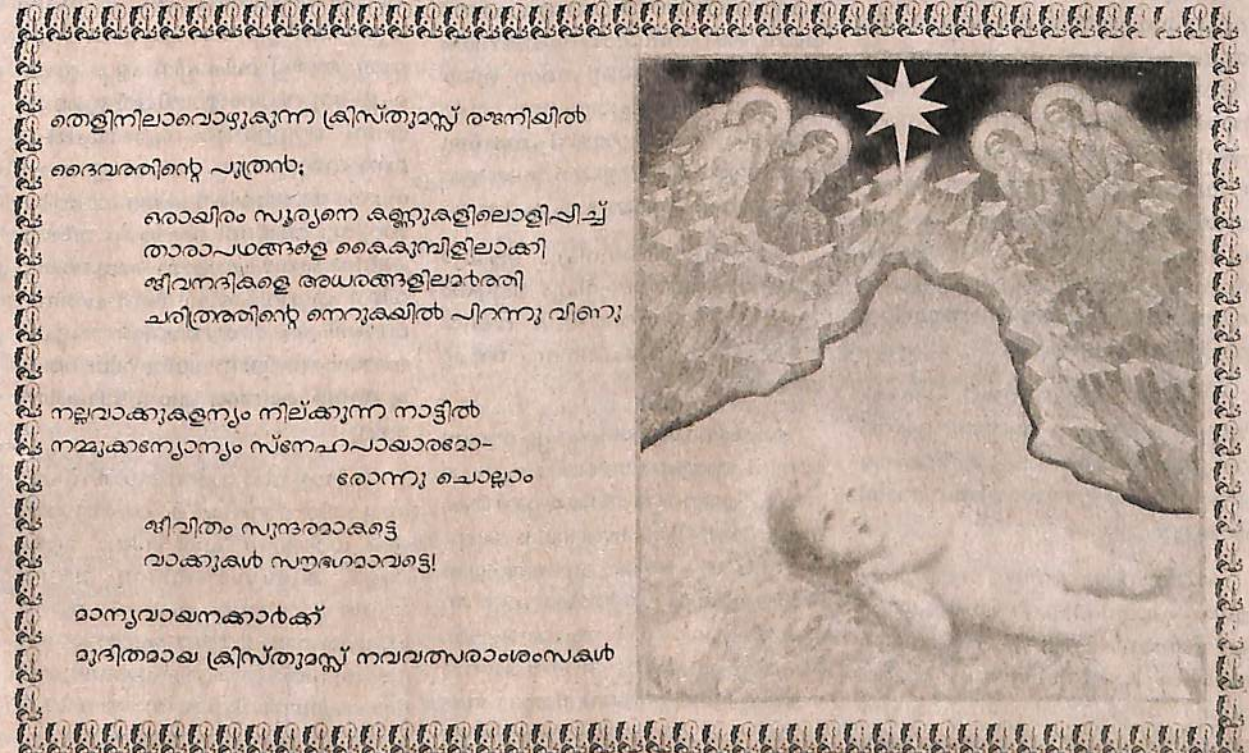 തെളിനിലാവൊഴുകുന്ന ക്രിസ്തുമസ്സ് രജനിയിൽ
ദൈവത്തിന്റെ പുത്രൻ;
ഒരായിരം സൂര്യനെ കണ്ണുകളിലൊളിപ്പിച്ച്
താരാപഥങ്ങളെ കൈകുമ്പിളിലാക്കി
ജീവനദികളെ അധരങ്ങളിലമർത്തി
ചരിത്രത്തിന്റെ നെറുകയിൽ പിറന്നു വീണു
നല്ലവാക്കുകളന്യം നില്ക്കുന്ന നാട്ടിൽ
നമ്മുക്കന്യോന്യം സ്നേഹപായാരമോ-
രോന്നു ചൊല്ലാം
ജീവിതം സുന്ദരമാകട്ടെ
വാക്കുകൾ സൗഭഗമാവട്ടെ!
മാന്യവായനക്കാർക്ക്
മുദിതമായ ക്രിസ്തുമസ്സ് നവവത്സരാംശംസകൾ